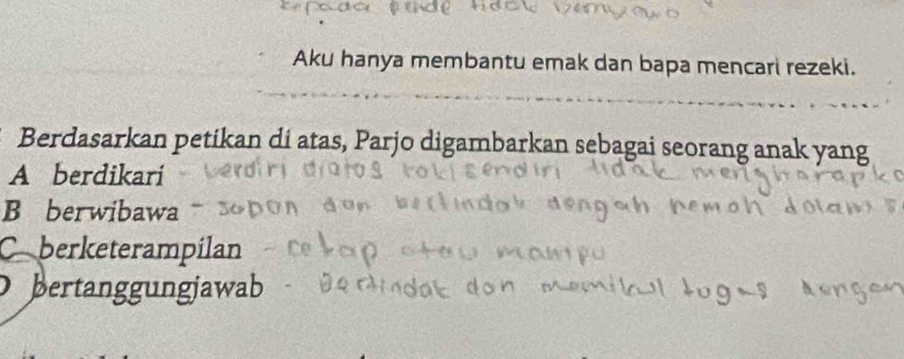 kepada pende tidak
Aku hanya membantu emak dan bapa mencari rezeki.
Berdasarkan petikan di atas, Parjo digambarkan sebagai seorang anak yang
A berdikari - berdiri diatas kaki sendiri tidak mengharapka
B berwibawa - sopan dan bertindak dengah hemah dalam s
C berketerampilan - cekap atau mampu
D bertanggungjawab - Bertindak dan memikul tugas dengan